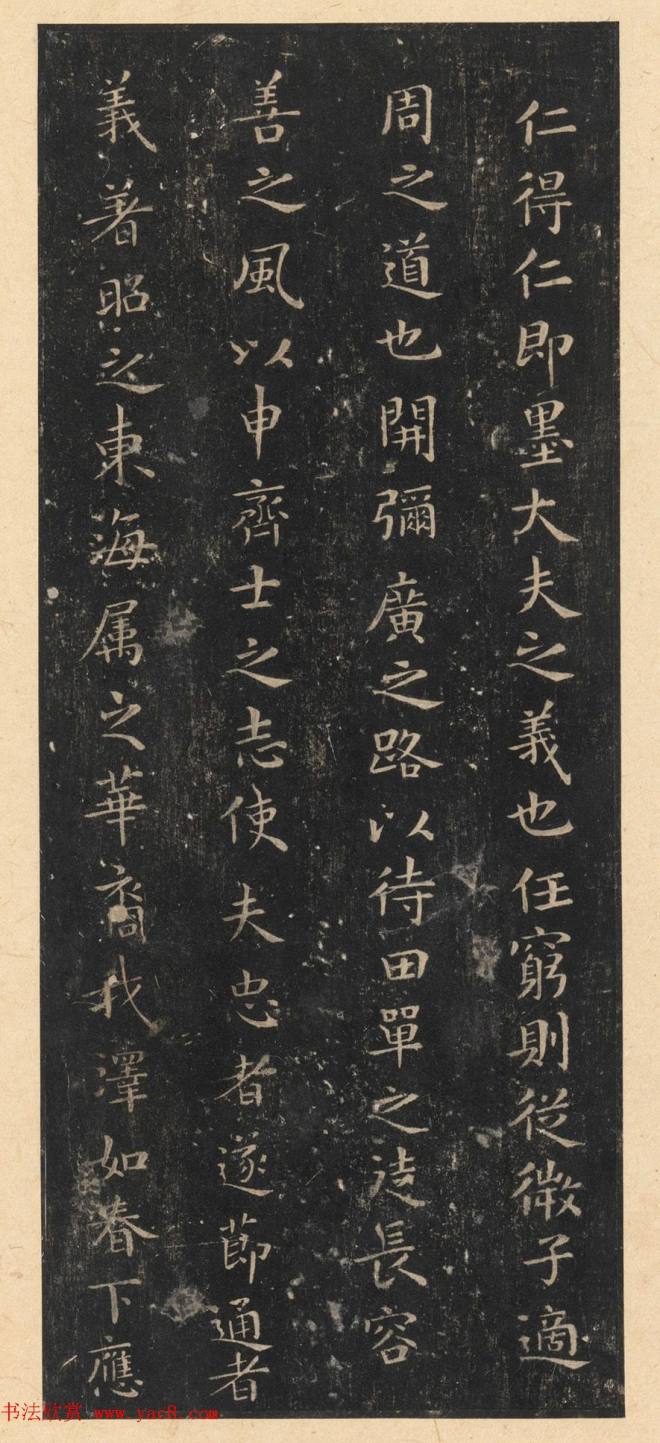 仁得仁即墨大夫之義也任窮則從微子適
周之道也開彌廣之路以待田單之徒長容
善之風以申齊士之志使夫忠者遂節通者
義著昭之東海属之華裔我澤如春下應
书法欣赏 www.yac8.com